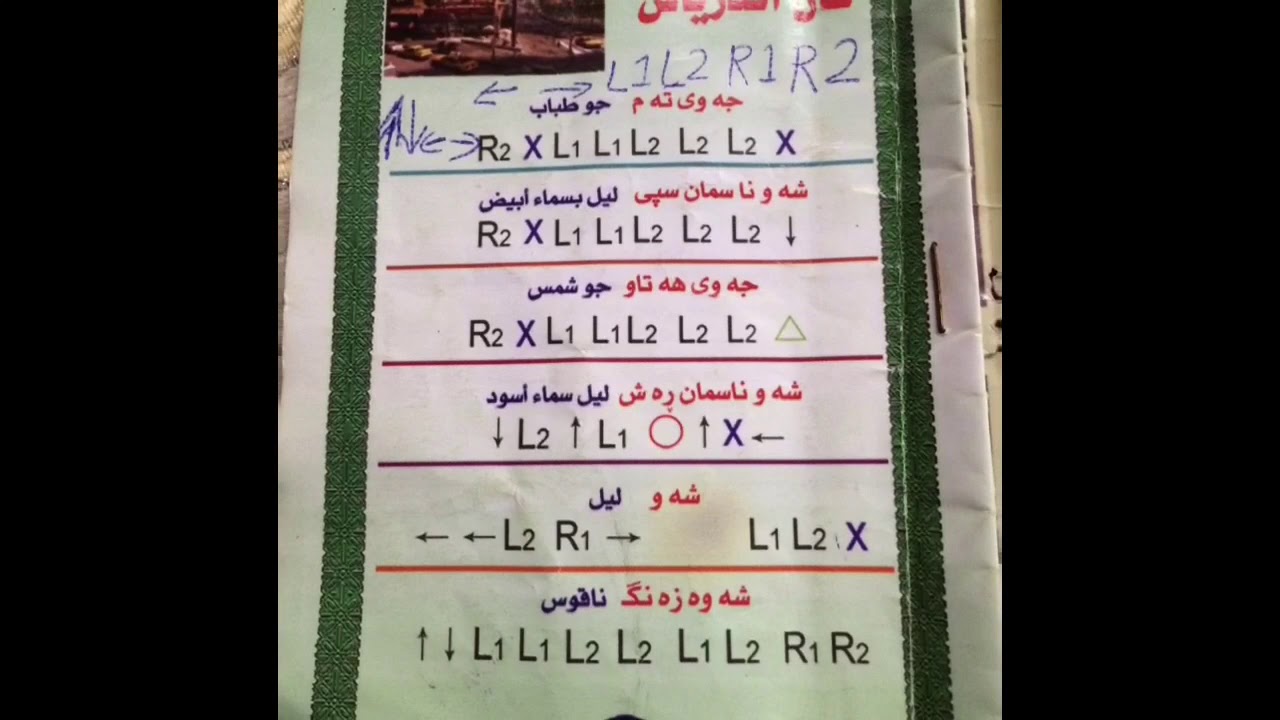 L1 L2 R1 R2
← →
جه وی ته م جو طباب
R2 X L1 L1 L2 L2 L2 X
شه و نا سمان سپی لیل بسماء أبیض
R2 X L1 L1 L2 L2 L2 ↓
جه وی هه تاو جو شمس
R2 X L1 L1 L2 L2 L2 △
شه و ناسمان ڕه ش لیل سماء أسود
↓ L2 ↑ L1 ○ ↑ X ←
شه و لیل
← ← L2 R1 → L1 L2 X
شه وه زه نگ ناقوس
↑ ↓ L1 L1 L2 L2 L1 L2 R1 R2